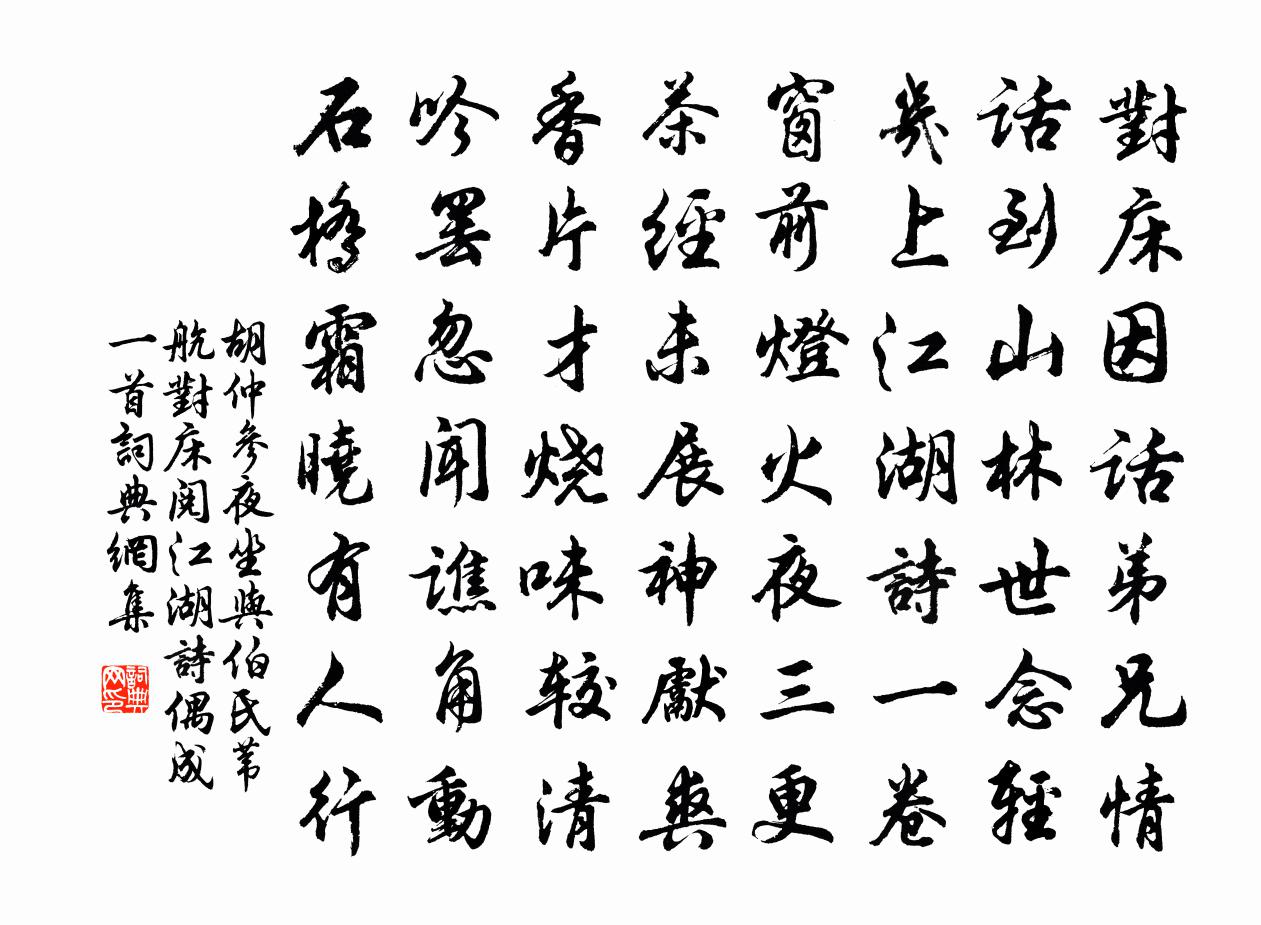 對床因话弟兄情
话到山林世念輕
幾上江湖詩一卷
窗前燈火夜三更
茶經未展神獻爽
香片才烧味较清
吟罢忽闻譙角動
石橋霜曉有人行
胡仲參夜坐與伯氏苇
航對床阅江湖詩偶成
一首詞典網集
詞典网印